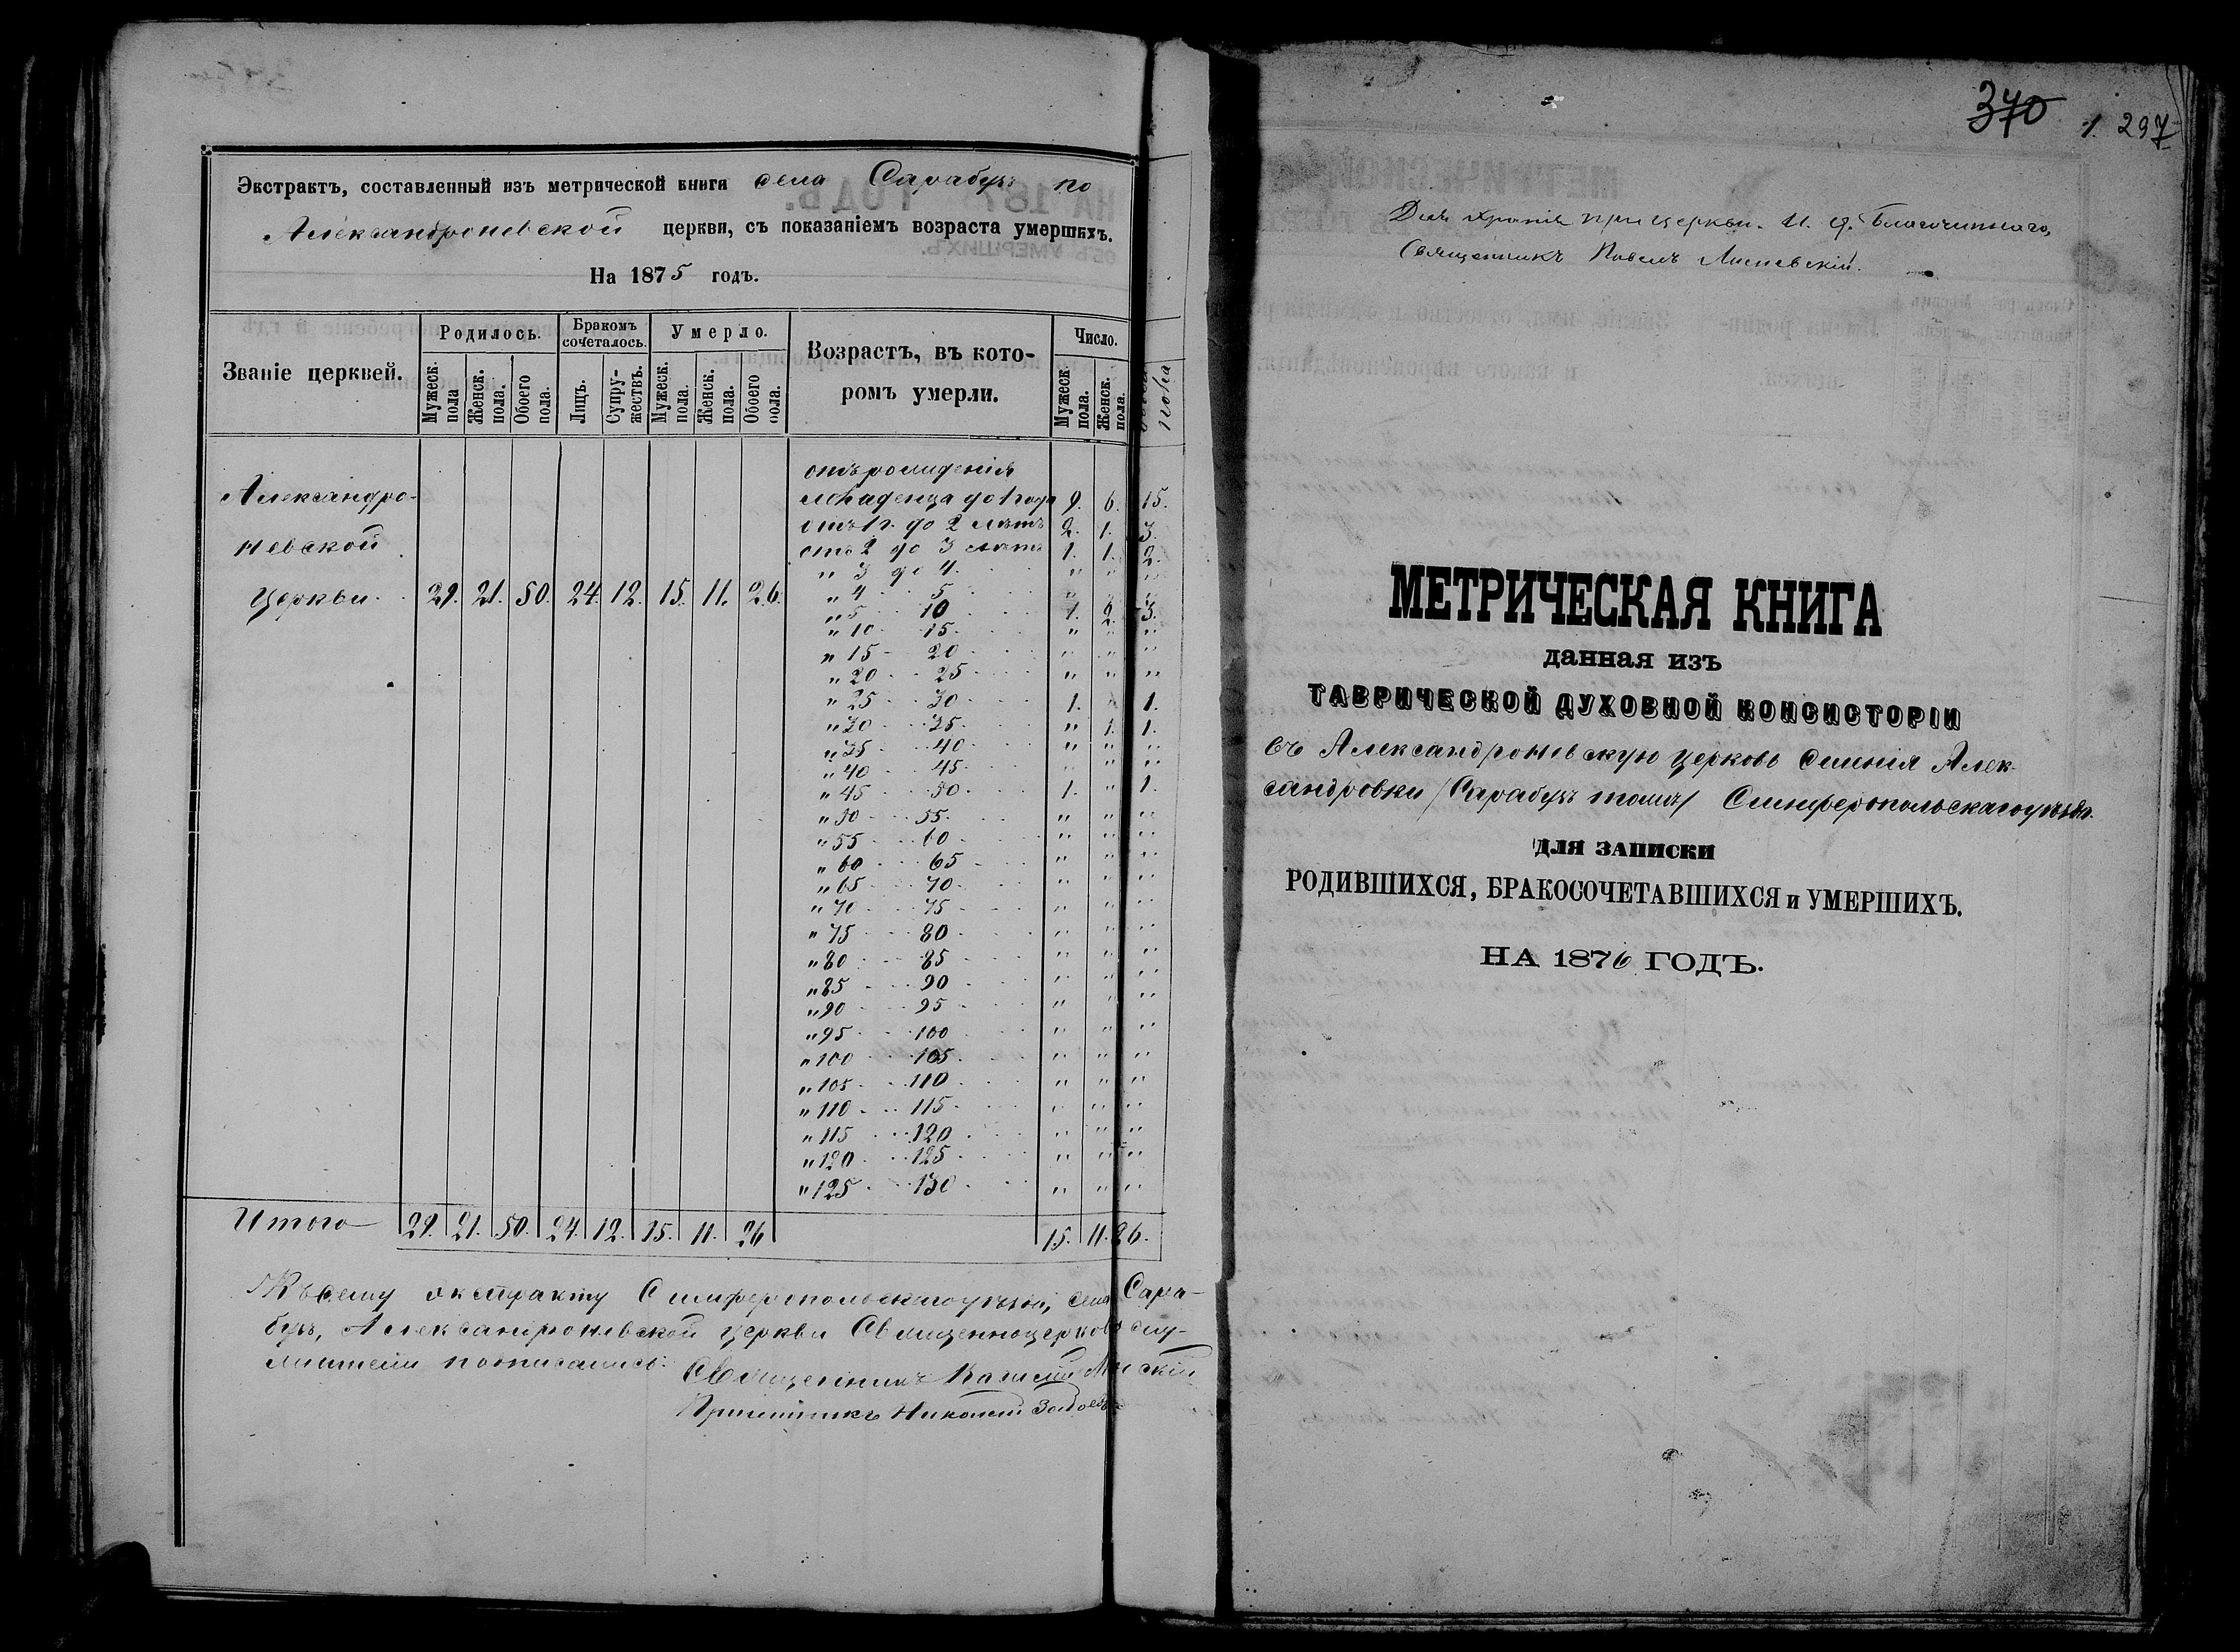 Экстрактъ, составленный изъ метрической книги села Сарабузъ по
Александроневской церкви, съ показаніемъ возраста умершихъ.
На 1875 годъ.
Званіе церквей.
Родилось.
Бракомъ сочеталось.
Умерло.
Возрастъ, въ которомъ умерли.
Число.
Мужеск. пола
Женск. пола.
Обоего пола.
Лицъ.
Супружествъ.
Мужеск. пола.
Женск. пола.
Обоего пола.
Мужеск. пола.
Женск. пола.
пола
отъ рожденія
Александро- младенца до 1 года 9. 6. 15.
отъ 1 г. до 2 лѣтъ 2. 1. 3.
невской отъ 2 до 3 лѣтъ 1. 1. 2.
" 3 до 4. " " "
Церкви. 29. 21. 50. 24. 12. 15. 11. 26. " 4 5 " " "
" 5 10 1. 2. 3.
" 10 15. " " "
" 15 20 " " "
" 20 25 " " "
" 25 30 1. " 1.
" 30 35 " 1. 1.
" 35 40 " " "
" 40 45 " " "
" 45 50 1. " 1.
" 50 55. " " "
" 55 60 " " "
" 60 65 " " "
" 65 70 " " "
" 70 75 " " "
" 75 80 " " "
" 80 85 " " "
" 85 90 " " "
" 90 95 " " "
" 95 100 " " "
" 100 105 " " "
" 105 110 " " "
" 110 115 " " "
" 115 120 " " "
" 120 125 " " "
" 125 130 " " "
Итого 29. 21. 50. 24. 12. 15. 11. 26 15. 11. 26.
Къ сему экстракту Симферопольскаго уѣзда, села Сара-
бузъ, Александроневской церкви Священноцерковнослу-
жители подписались:
Священникъ
Причетникъ Николай
370
1. 297
Для храненія при церкви. И. д. Благочиннаго,
Священникъ Павелъ
МЕТРИЧЕСКАЯ КНИГА
данная изъ
ТАВРИЧЕСКОЙ ДУХОВНОЙ КОНСИСТОРІИ
въ Александроневскую церковь селенія Алек-
сандровки /Сарабузъ тожъ/ Симферопольскаго уѣзда.
ДЛЯ ЗАПИСКИ
РОДИВШИХСЯ, БРАКОСОЧЕТАВШИХСЯ и УМЕРШИХЪ.
НА 1876 ГОДЪ.